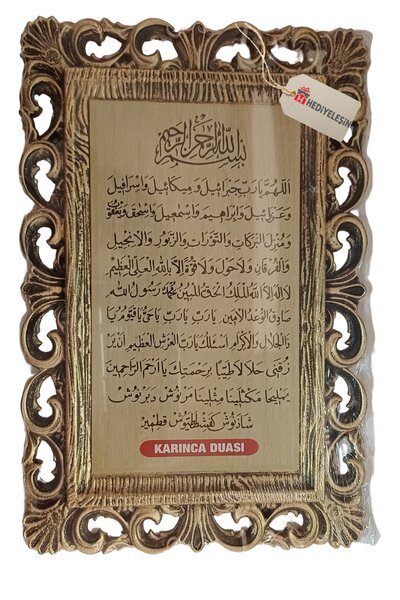 HEDİYELEŞİN
بسم الله الرحمن الرحيم
اَللّٰهُمَّ يَارَبَّ جَبْرَائِيلَ وَمِيكَائِيلَ وَاِسْرَافِيلَ
وَعَزْرَائِيلَ وَاِبْرَاهِيمَ وَاِسْمَعِيلَ وَاِسْحٰقَ وَيَعْقُوبَ
وَمُنْزِلَ الْبَرَكَاتِ وَالتَّوْرَاتِ وَالزَّبُورِ وَالْاِنْجِيلِ
وَالْفُرْقَانِ وَلَاحَوْلَ وَلَاقُوَّةَ اِلَّا بِاللهِ الْعَلِىِّ الْعَظِيمِ
لَااِلٰهَ اِلَّا اللهُ الْمَلِكُ الْحَقُّ الْمُبِينُ مُحَمَّدٌ رَسُولُ اللهِ
صَادِقُ الْوَعْدِ الْاَمِينِ يَارَبِّ يَارَبِّ يَاحَىُّ يَاقَيُّومُ يَا
ذَاالْجَلَالِ وَالْاِكْرَامِ اَسْئَلُكَ يَارَبَّ الْعَرْشِ الْعَظِيمِ اَنْ يَرْ
زُقَنِى حَلَالًا طَيِّبًا بِرَحْمَتِكَ يَا اَرْحَمَ الرَّاحِمِينَ
يمليخا مكثلينا مثلينا مرنوش دبرنوش
شاذنوش كفشططيوش قطمير
KARINCA DUASI